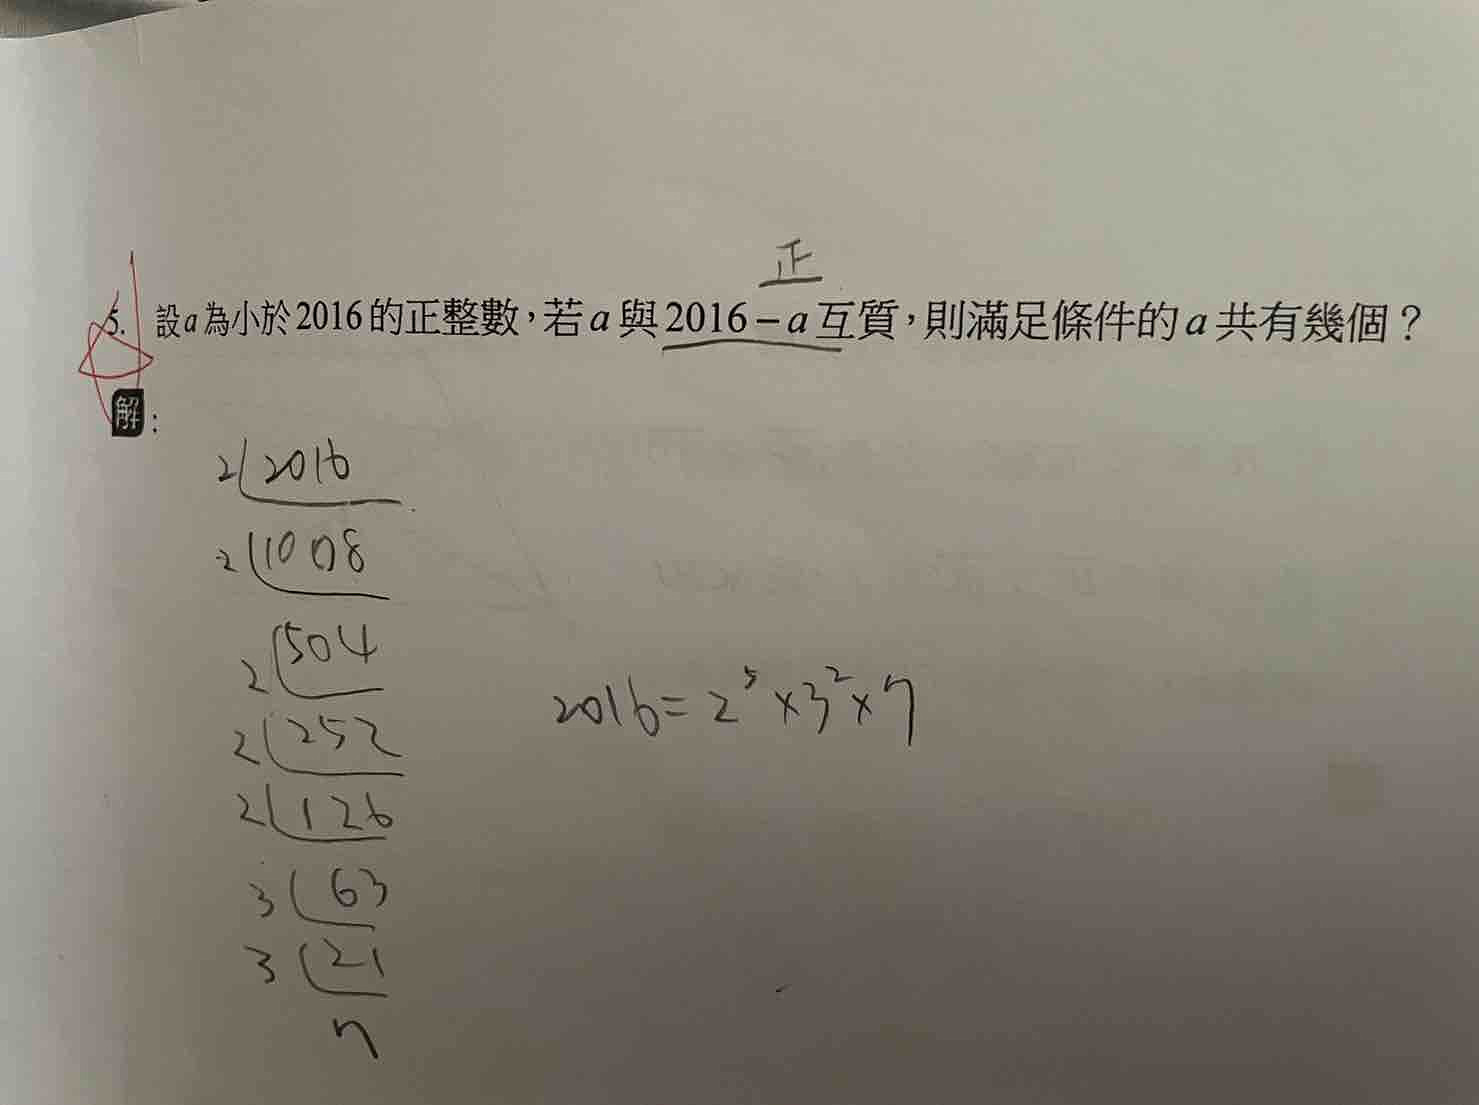 正
5. 設a為小於2016的正整數，若a與2016－a互質，則滿足條件的a共有幾個？
解：
2 2016
2 1008
2 504
2 252
2016=2⁵×3²×7
2 126
3 63
3 21
7